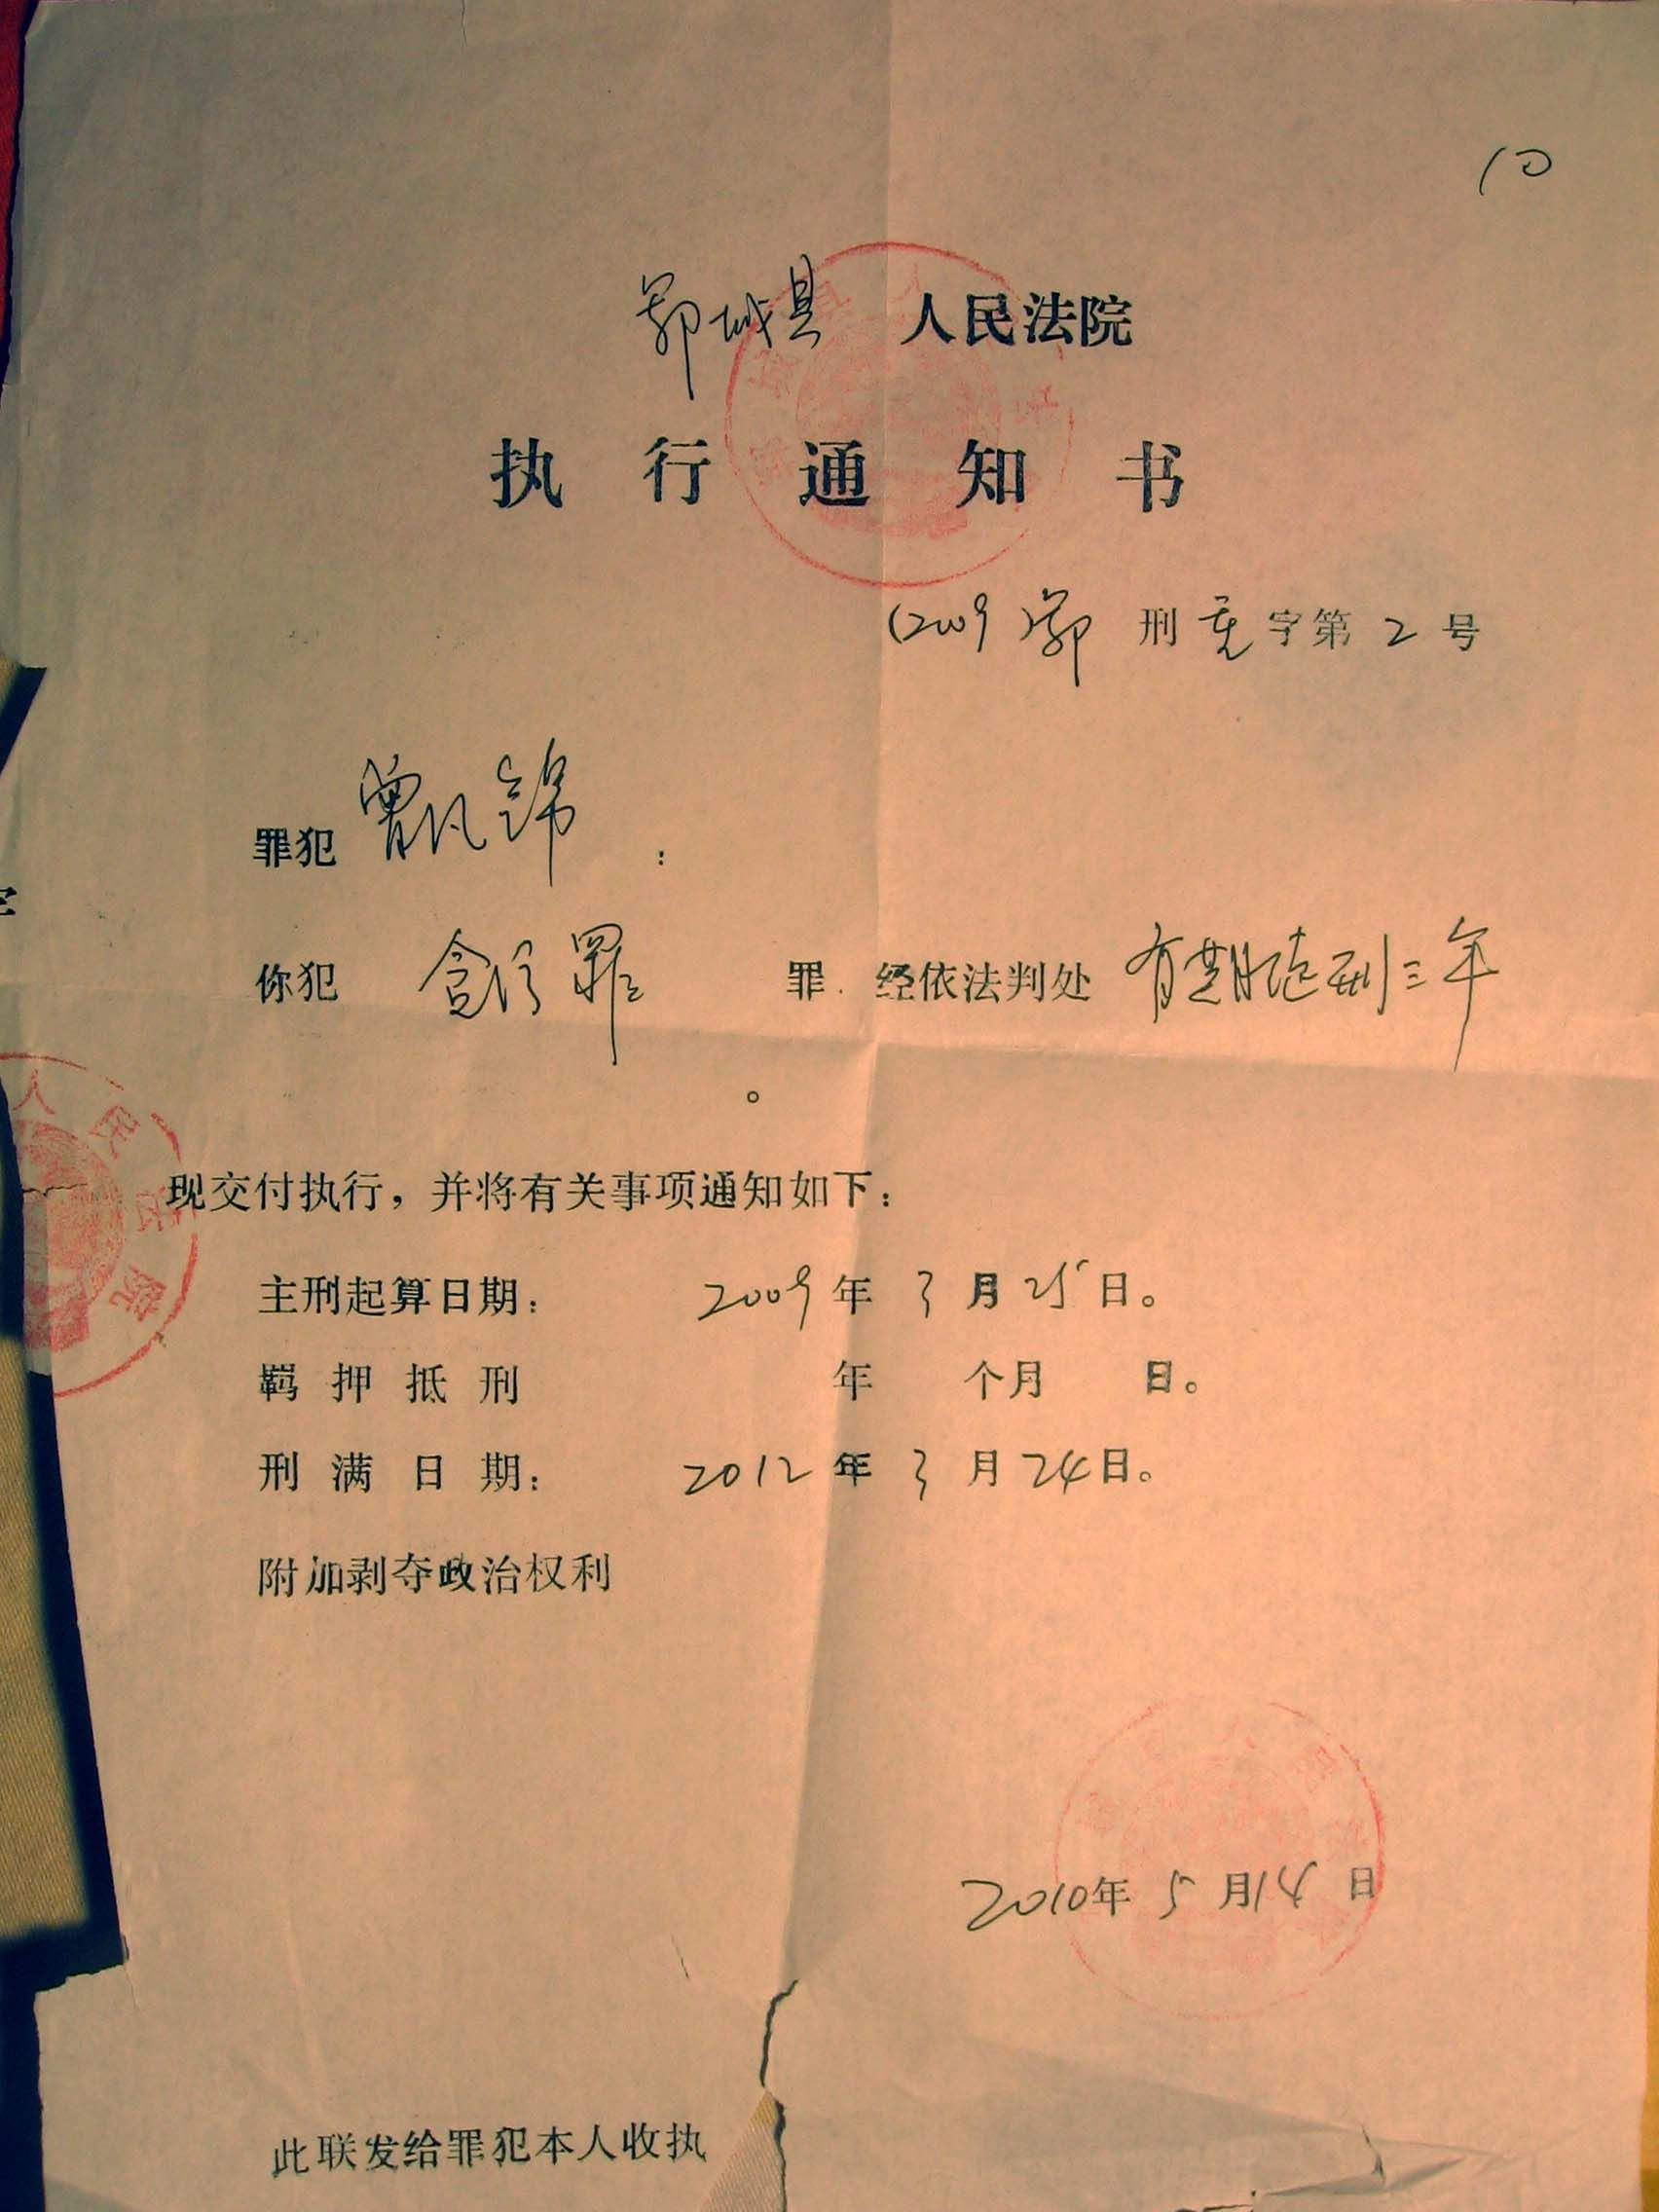 10
郓城县 人民法院
执行通知书
(2009)郓刑重字第2号
罪犯 曾凡锦 :
你犯 贪污罪 罪.经依法判处 有期徒刑三年
。
现交付执行，并将有关事项通知如下：
主刑起算日期： 2009年3月25日。
羁押抵刑 年 个月 日。
刑满日期： 2012年3月24日。
附加剥夺政治权利
2010年5月14日
此联发给罪犯本人收执
人民法院